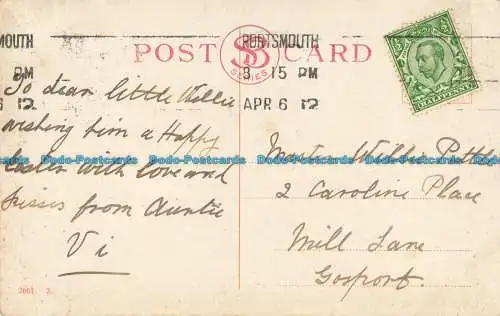 MOUTH
PM
6 12
POST CARD
SB
SERIES
PORTSMOUTH
8 15 PM
APR 6 12
HALFPENNY
To dear little Willie
wishing him a Happy
Easter with love and
kisses from Auntie
Vi
Willie
2 Caroline Place
Mill Lane
Gosport.
Dodo-Postcards Dodo-Postcards Dodo-Postcards Dodo-Postcards Dodo-Postcards